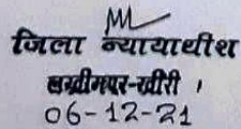 जिला न्यायाधीश
लखीमपुर-खीरी ,
06-12-21